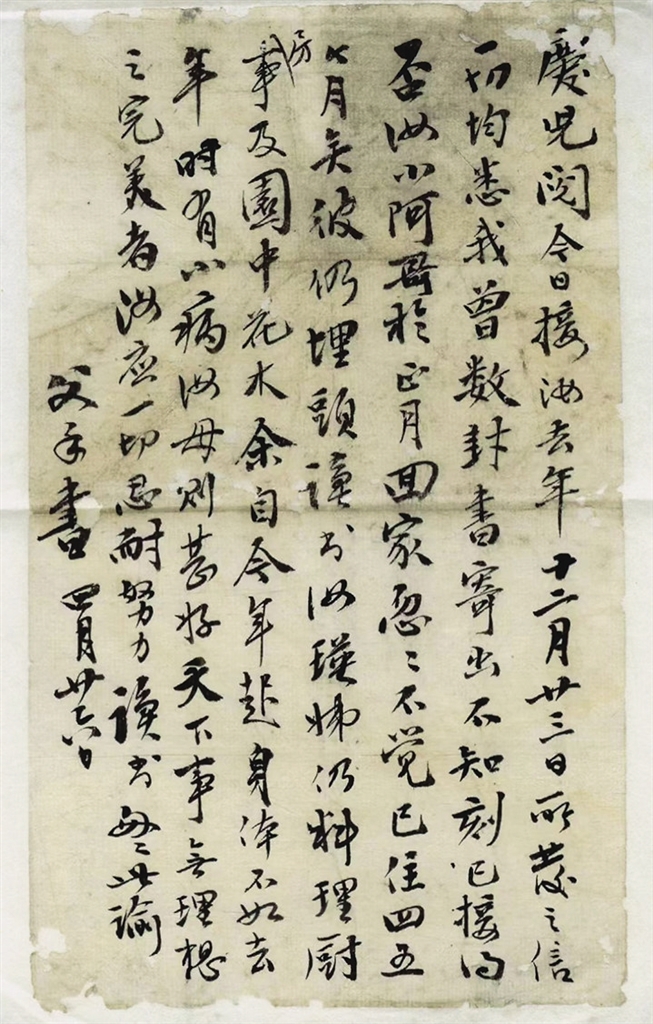 慶兒閱今日接汝去年十二月廿三日所發之信
一切均悉我曾數封書寄出不知刻已接得
否汝小阿哥於正月回家忽〻不覚已住四五
七月矣彼仍埋頭讀书汝瑛姊仍料理厨
房事及園中花木余自今年起身体不如去
年时有小病汝母则甚好天下事無理想
之完美者汝应一切忍耐努力讀书
此諭
父手書 四月廿六日